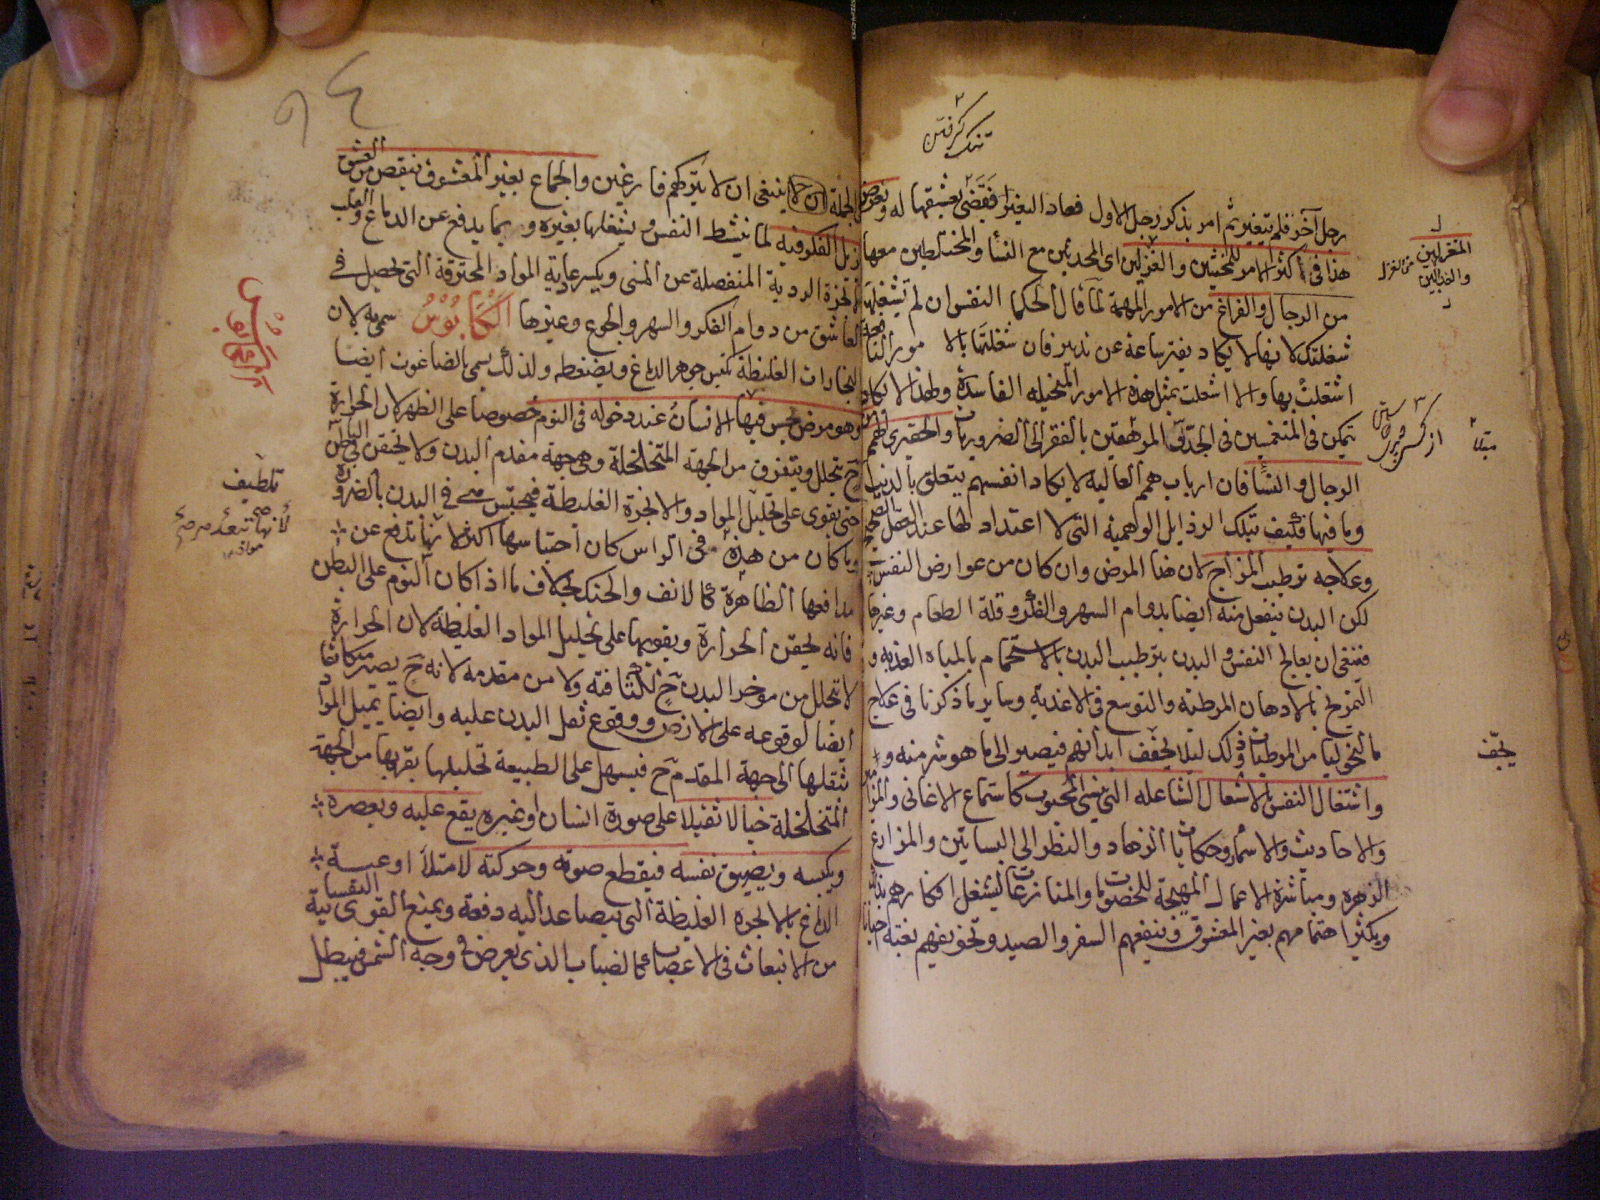 تنك گرفتن
رجل آخر فلم يتغير ثم امر بذكر رجل الاول فعاد التغير فقضى بعشقها له ويعرض
هذا فى اكثر الامر للمخنثين والغزلين اى المحدثين مع النسا والمختلطين معها
من الرجال والفراغ من الامور المهمة لما قال الحكما النفس ان لم تشغلها
شغلتك لانها لا يكاد يفتر ساعة عن تدبير فان شغلتها بالامور النافعة
اشتغلت بها والا اشتغلت بمثل هذه الامور المتخيله الفاسدة ولهذا لا يكاد
يتمكن فى المنغمسين فى المرهقين بالفقر الى الضروريات والحقيرى الهمم
الرجال والنسا فان ارباب همم العالية لا يكاد انفسهم يتعلق بالدنيا
وما فيها فكيف بتلك الرذايل الوهمية التى لا اعتداد لها عند العقل
وعلاجه ترطيب المزاج لان هذا المرض وان كان من عوارض النفس
لكن البدن ينفعل منه ايضا بدوام السهر والفكر وقلة الطعام وغيرها
فينبغى ان يعالج النفس والبدن بترطيب البدن بالاستحمام بالمياه العذبه و
التمريخ بالادهان المرطبة والتوسع فى الاغذية وساير ما ذكرنا فى علاج
مالنخوليا من المرطبات وذلك ليلا يجفف ابدانهم فيصير الى ما هو شر منه و
واشتغال النفس بالاشغال الشاغله التى ينسى المحبوب كاستماع الاغانى والمزامير
والاحاديث والاسمار وحكايات الزهاد والنظر الى البساتين والمزارع
الزهره ومباشرة الاعمال المهيجة للخصومات والمنازعات ليشغل افكارهم بذلك
ويكثر اهتمامهم بغير المعشوق وينفعهم السفر والصيد وتخويفهم بغتة احيانا
المتغزلين
والغزالين
من الغزل
مبتلا
يجفف
وبالجملة ينبغى ان لا يتركهم فارغين والجماع بغير المعشوق ينقص من العشق
ويزيل الفكر فيه لما ينشط النفس ويشغلها بغيره وربما يدفع عن الدماغ والقلب
الابخرة الردية المنفصلة عن المنى ويكسر عادية المواد المحترقة التى يحصل فى
العاشق من دوام الفكر والسهر والجوع وغيرها الكابوس سمى به لان
البخارات الغليظة تكبس جوهر الدماغ ويضغطه ولذلك يسمى بالضاغوث ايضا
وهو مرض يحس فيها الانسان عند دخوله فى النوم خصوصا على الظهر لان الحرارة
ح يتحلل ويتفرق من الجهة المتخلخلة وهى جهة مقدم البدن ولا يحتقن فى الباطن
حتى يقوى على تحليل المواد والابخرة الغليظة فيحتبس هى فى البدن بالضرورة
وما كان من هذه فى الراس كان احتباسها اكثر لانها تدفع عن
مدافعها الظاهرة كالانف والحنك بخلاف ما اذا كان النوم على البطن
فانه يحقن الحرارة ويقويها على تحليل المواد الغليظة لان الحرارة
لا تتحلل من موخر البدن ح لكثافته ولا من مقدمه لانه ح يصير متكاثفا
ايضا لوقوعه على الارض ووقوع ثقل البدن عليه وايضا يميل المواد
بثقلها الى جهة المقدم ح فيسهل على الطبيعة تحليلها بقربها من الجهة
المتخلخلة خيالا ثقيلا على صورة انسان او غيره يقع عليه ويعصره
ويكبسه ويضيق نفسه فينقطع صوته وحركته لامتلا اوعية
الدماغ بالابخرة الغليظة التى يتصاعد اليه دفعة ويمنع القوى النفسانية
من الانبعاث فى الاعصاب كالضباب الذى يعرض فى وجه الشمس فيبطل
تلطيف